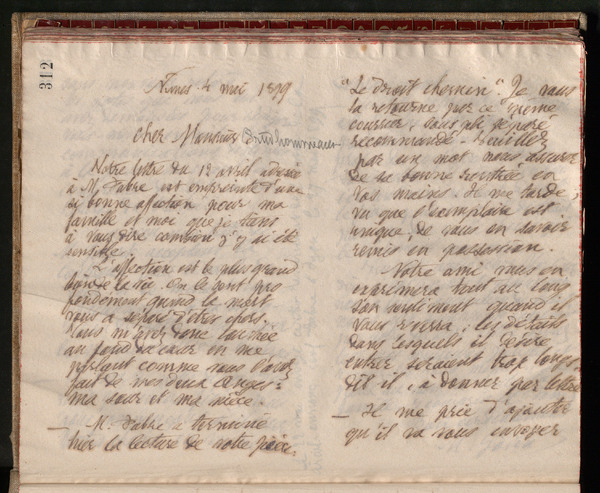 312
Nimes 4 mai 1899
Cher Monsieur Prudhommeaux
Votre lettre du 12 avril adressée
à M. Fabre est empreinte d'une
si bonne affection pour ma
famille et moi que je tiens
à vous dire combien j'y ai été
sensible.
L'affection est le plus grand
bien de la vie. On le sent pro
fondément quand la mort
vous a séparé d'êtres chers.
Vous m'avez donc touchée
au fond du cœur en me
parlant comme vous l'avez
fait de nos deux Anges :
ma sœur et ma nièce.
— M. Fabre a terminé
hier la lecture de votre pièce :
"Le Droit chemin". Je vous
la retourne par ce même
courrier, sous pli séparé
recommandé. Veuillez
par un mot nous assurer
de sa bonne rentrée en
vos mains. Il me tarde,
vu que l'exemplaire est
unique, de vous en savoir
remis en possession.
Notre ami vous en
exprimera tout au long
son sentiment quand il
vous reverra ; les détails
dans lesquels il désire
entrer seraient trop longs
dit il, à donner par lettre
— Il me prie d'ajouter
qu'il va vous envoyer